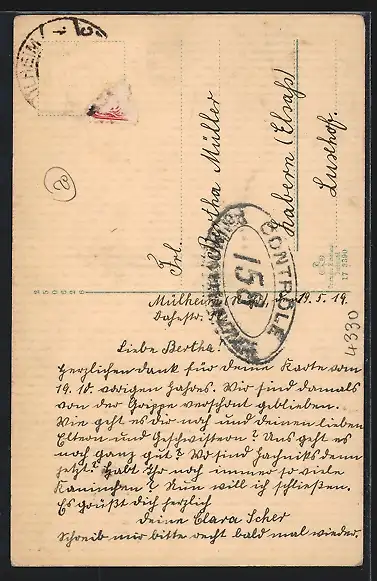 MÜLHEIM
Frl. Bertha Müller
Zabern (Elsaß)
Lusehof.
CONTRÔLE
15
Mülheim, den 19.5.19.
Liebe Bertha!
Herzlichen dank für deine Karte vom
19.10. vorigen Jahres. Wir sind damals
von der Grippe verschont geblieben.
Wie geht es dir noch und deinen lieben
Eltern und Geschwistern? Uns geht es
noch ganz gut. Wo sind denn
jetzt? Habt Ihr noch immer so viele
Kaninchen? Nun will ich schließen.
Es grüßt dich herzlich
deine Clara Scher
Schreib mir bitte recht bald mal wieder.
4330
250626
17 2390